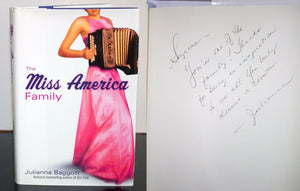 The
Miss America
Family
Julianna Baggott
National bestselling author of Girl Talk
Suzanne –
You're one of the
family! Thanks
for being an inspiration
to us all. You truly
deserve a
— Julianna